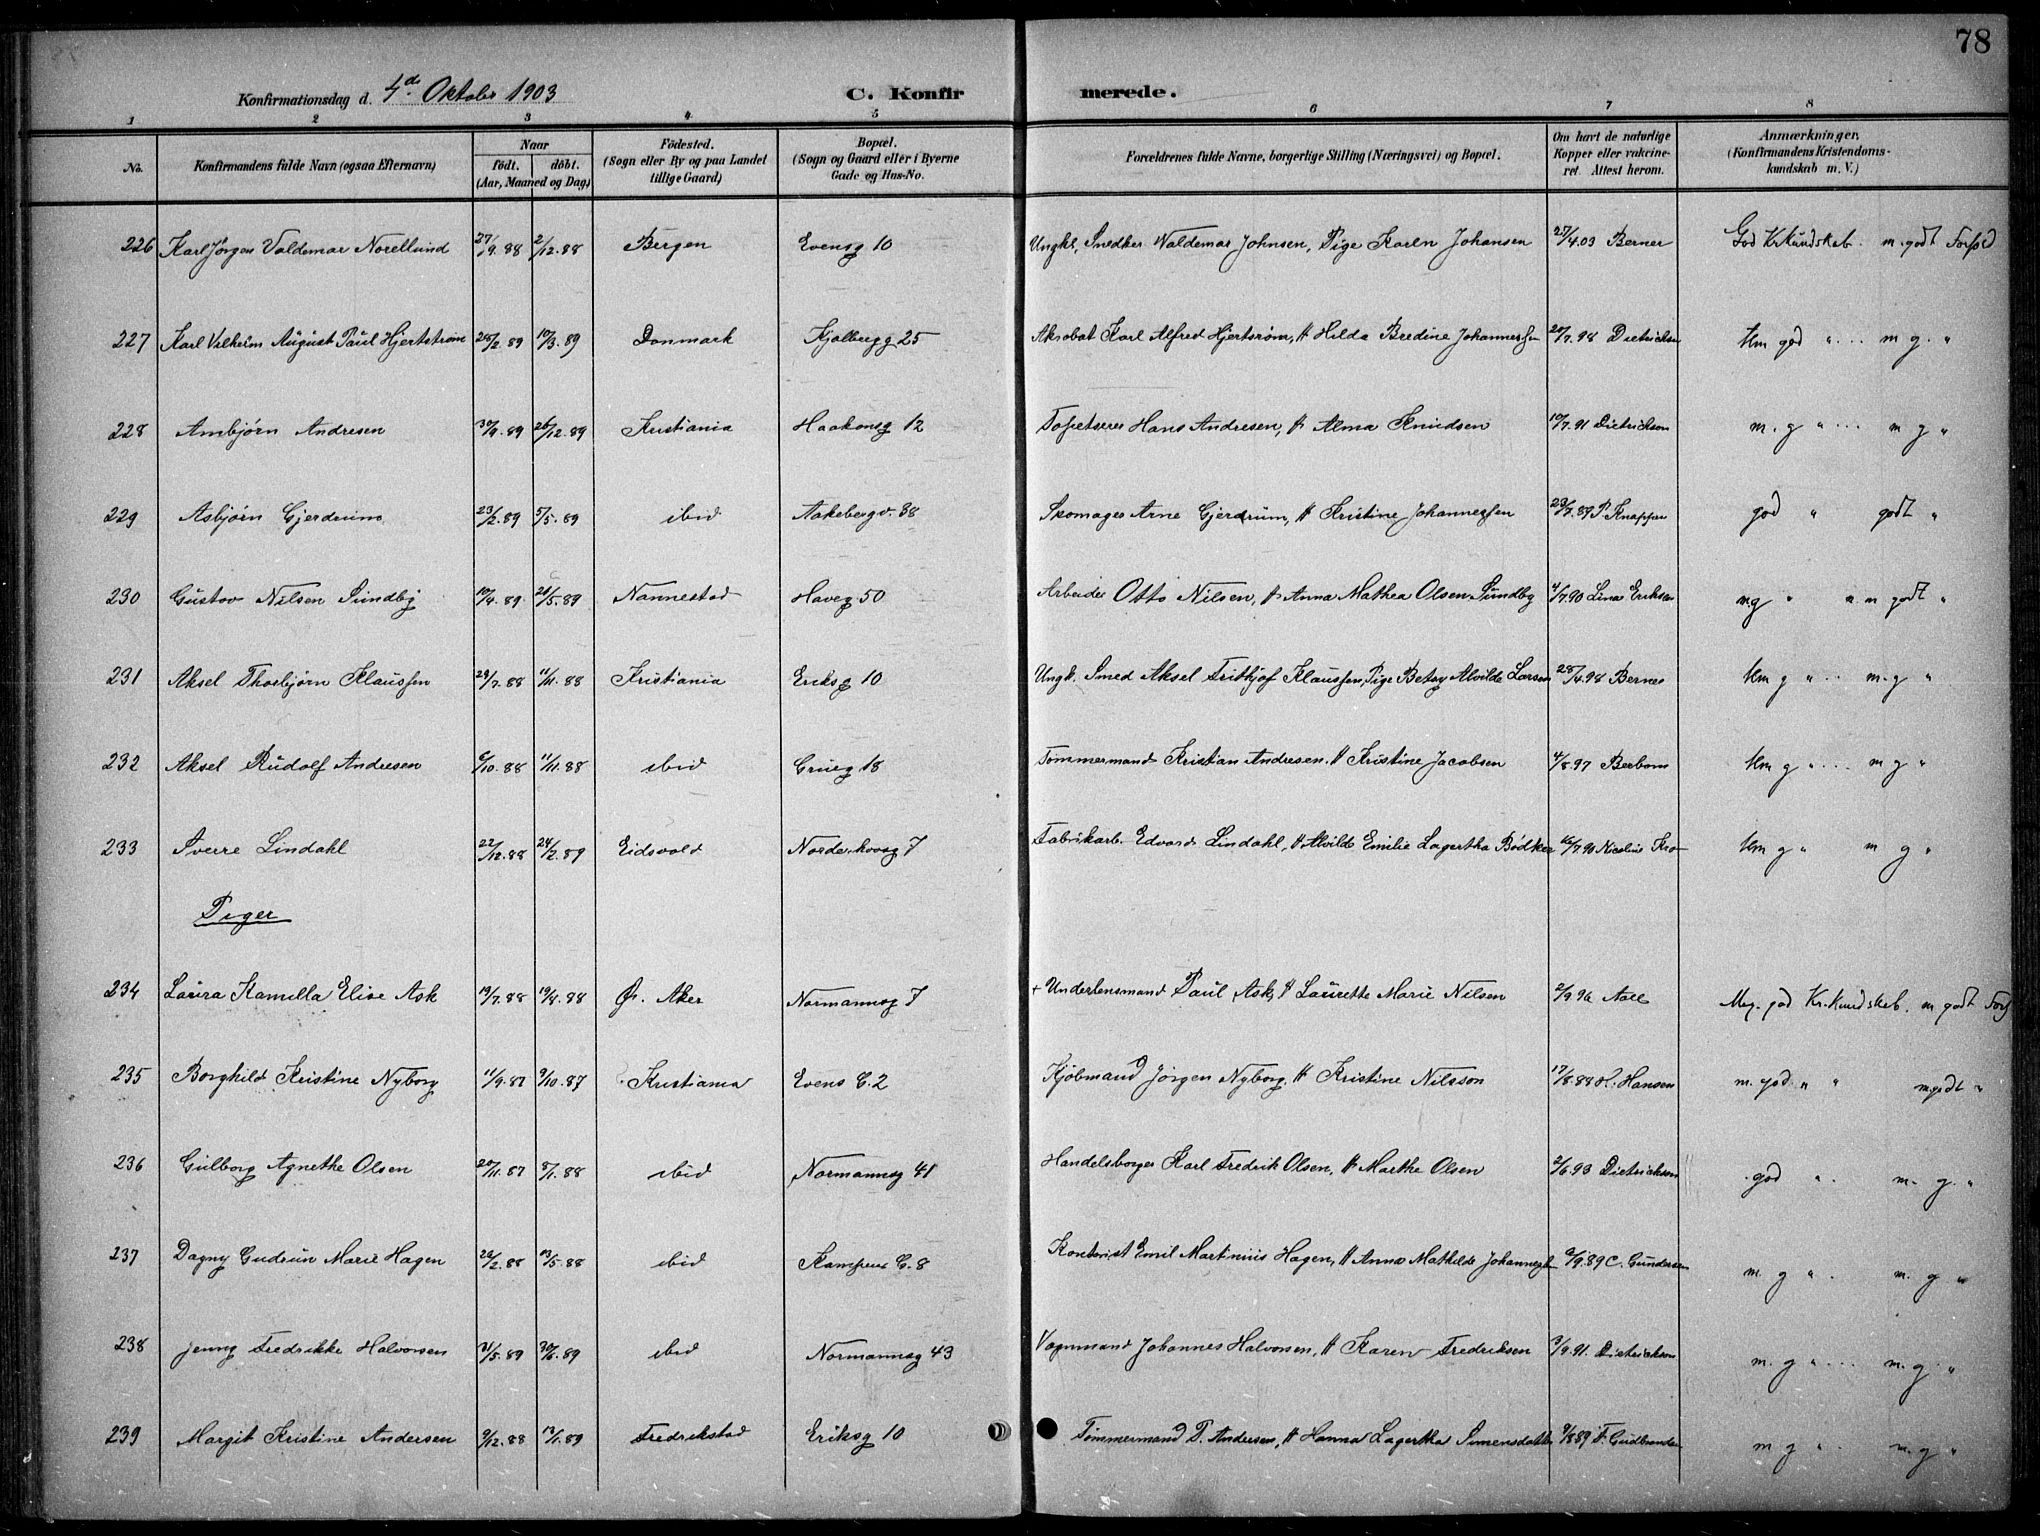 78
Konfirmationsdag d. 4de Oktober 1903 C. Konfirmerede.
1 2 3 4 5 6 7 8
No. Konfirmandens fulde Navn (ogsaa Efternavn) Naar födt. döbt. (Aar, Maaned og Dag) Födested. (Sogn eller By og paa Landet tillige Gaard) Bopæl. (Sogn og Gaard eller i Byerne Gade og Hus-No. Forældrenes fulde Navne, borgerlige Stilling (Næringsvei) og Bopæl. Om havt de naturlige Kopper eller vakcineret. Attest herom. Anmærkninger. (Konfirmandens Kristendomskundskab m. V.)
226 Karl Jörgen Valdemar Norellund 27/9.88 2/12.88 Bergen Evensg 10 Ungk. Snedker Waldemar Johnsen, Pige Karen Johansen 27/4.03 Berner God Kr.Kundskab. m. godt Forhd
227 Karl Vilhelm August Paul Hjertström 28/2.89 10/3.89 Danmark Kjølbergg 25 Akrobat Karl Alfred Hjertsrøm, H Hilda Bredine Johannessen 20/7.98 Dietrichsn tem god " ... m g. "
228 Arnbjørn Andresen 30/9.89 26/12.89 Kristiania Haakonsg 12 Tapetserer Hans Andresen, H Alma Knudsen 10/7.91 Dietrichson m. g " ... m g "
229 Asbjørn Gjerdrum 23/2.89 5/5.89 ibid Aakebergv. 38 Skomager Arne Gjerdrum, H Kristine Johannessen 23/7.89 P Knappen god " godt "
230 Gustav Nilsen Sundby 10/4.89 26/5.89 Nannestad Haveg 50 Arbeider Otto Nilsen, H Anna Mathea Olsen Sundby 4/7.90 Lina Eriksen m.g " m godt "
231 Aksel Thorbjørn Klaussen 28/7.88 11/11.88 Kristiania Eriksg 10 Ungk. Smed Aksel Frithjof Klaussen, Pige Betsy Alvilde Larsen 28/4.98 Berner tem g " .. m. g "
232 Aksel Rudolf Andresen 6/10.88 11/11.88 ibid Grueg 18 Tømmermand Kristian Andresen. H Kristine Jacobsen 4/8.97 Berbom tem g " ... m g "
233 Sverre Lindahl 22/12.88 24/2.89 Eidsvold Norderhovsg 7 Fabrikarb. Edvard Lindahl, H Alvilde Emilie Lagertha Bødker 16/7.90 Nicoline Kro tem g " m g "
Piger
234 Laura Kamilla Elise Ask 13/7.88 19/8.88 Ø. Aker Normannsg 7 + Underlensmand Paul Ask, H Laurette Marie Nilsen 2/9.96 Aall Meg. god Kr.Kundskab. m godt Forh
235 Borghild Kristine Nyborg 11/9.87 9/10.87 Kristiania Evens G. 2 Kjøbmand Jörgen Nyborg, H Kristine Nilsson 17/8.88 H. Hansen m. god " " m godt "
236 Gulborg Agnethe Olsen 20/11.87 8/1.88 ibid Normannsg 41 Handelsborger Karl Fredrik Olsen, H Marthe Olsen 2/6.93 Dietrichson god " . m. g. "
237 Dagny Gudrun Marie Hagen 22/2.88 13/5.88 ibid Kampens G. 8 Kontorist Emil Martinius Hagen, H Anna Mathilde Johannessen 2/9.89 C. Gundersen m. g " . m. g "
238 Jenny Fredrikke Halvorsen 31/5.89 30/6.89 ibid Normannsg 43 Vognmand Johannes Halvorsen, H Karen Fredriksen 3/9.91. Dietrichson m. g " ... m. g. "
239 Margit Kristine Andersen 9/12.88 13/1.89 Fredrikstad Eriksg 10 Tømmermand P. Andersen, H Hanna Lagertha Simensdatter 9/8 89 F. Gudbrandsen m g " . m. g "